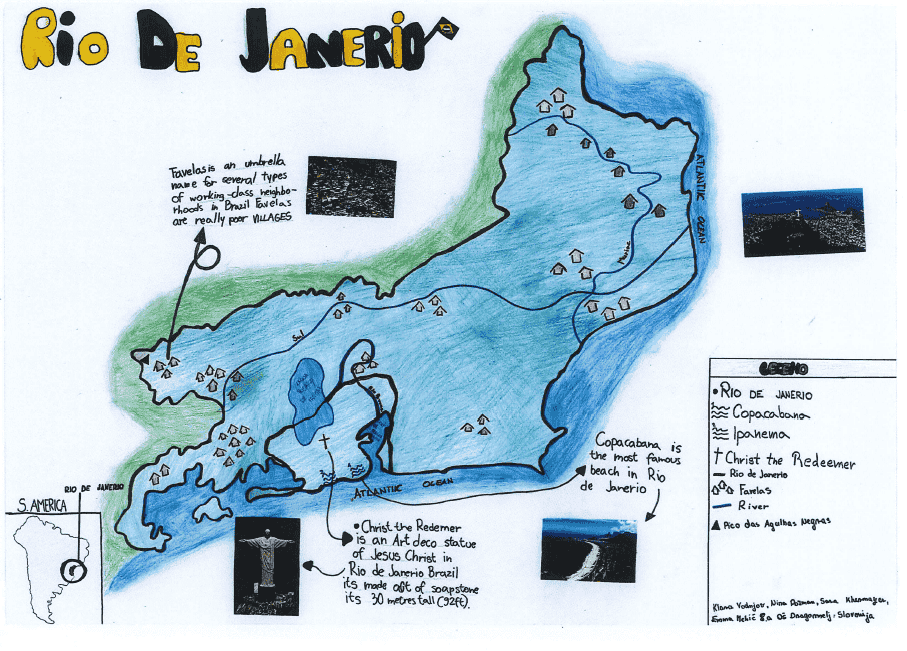 RIO DE JANERIO
Favelas is an umbrella
name for several types
of working-class neighbo-
rhoods in Brazil Favelas
are really poor VILLAGES
ATLANTIC OCEAN
Sul
LEGEND
•RIO DE JANERIO
Copacabana
Ipanema
Christ the Redeemer
Rio de Janerio
Favelas
River
Pico das Agulhas Negras
Copacabana is
the most famous
beach in Rio
de Janerio
ATLANTIC OCEAN
RIO DE JANERIO
S. AMERICA
•Christ the Redemer
is an Art deco statue
of Jesus Christ in
Rio de Janerio Brazil
its made out of soapstone
its 30 metres tall (92ft).